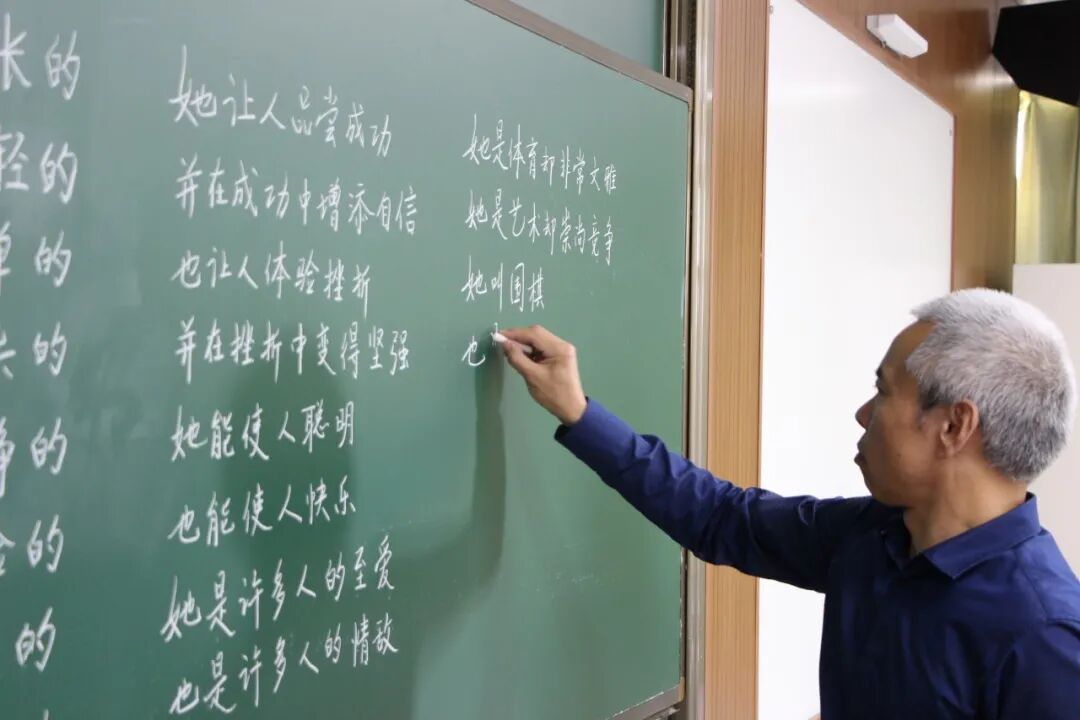 长的
轻的
单的
的
净的
的
的
她让人品尝成功
并在成功中增添自信
也让人体验挫折
并在挫折中变得坚强
她能使人聪明
也能使人快乐
她是许多人的至爱
也是许多人的情敌
她是体育却非常文雅
她是艺术却崇尚竞争
她叫围棋
也